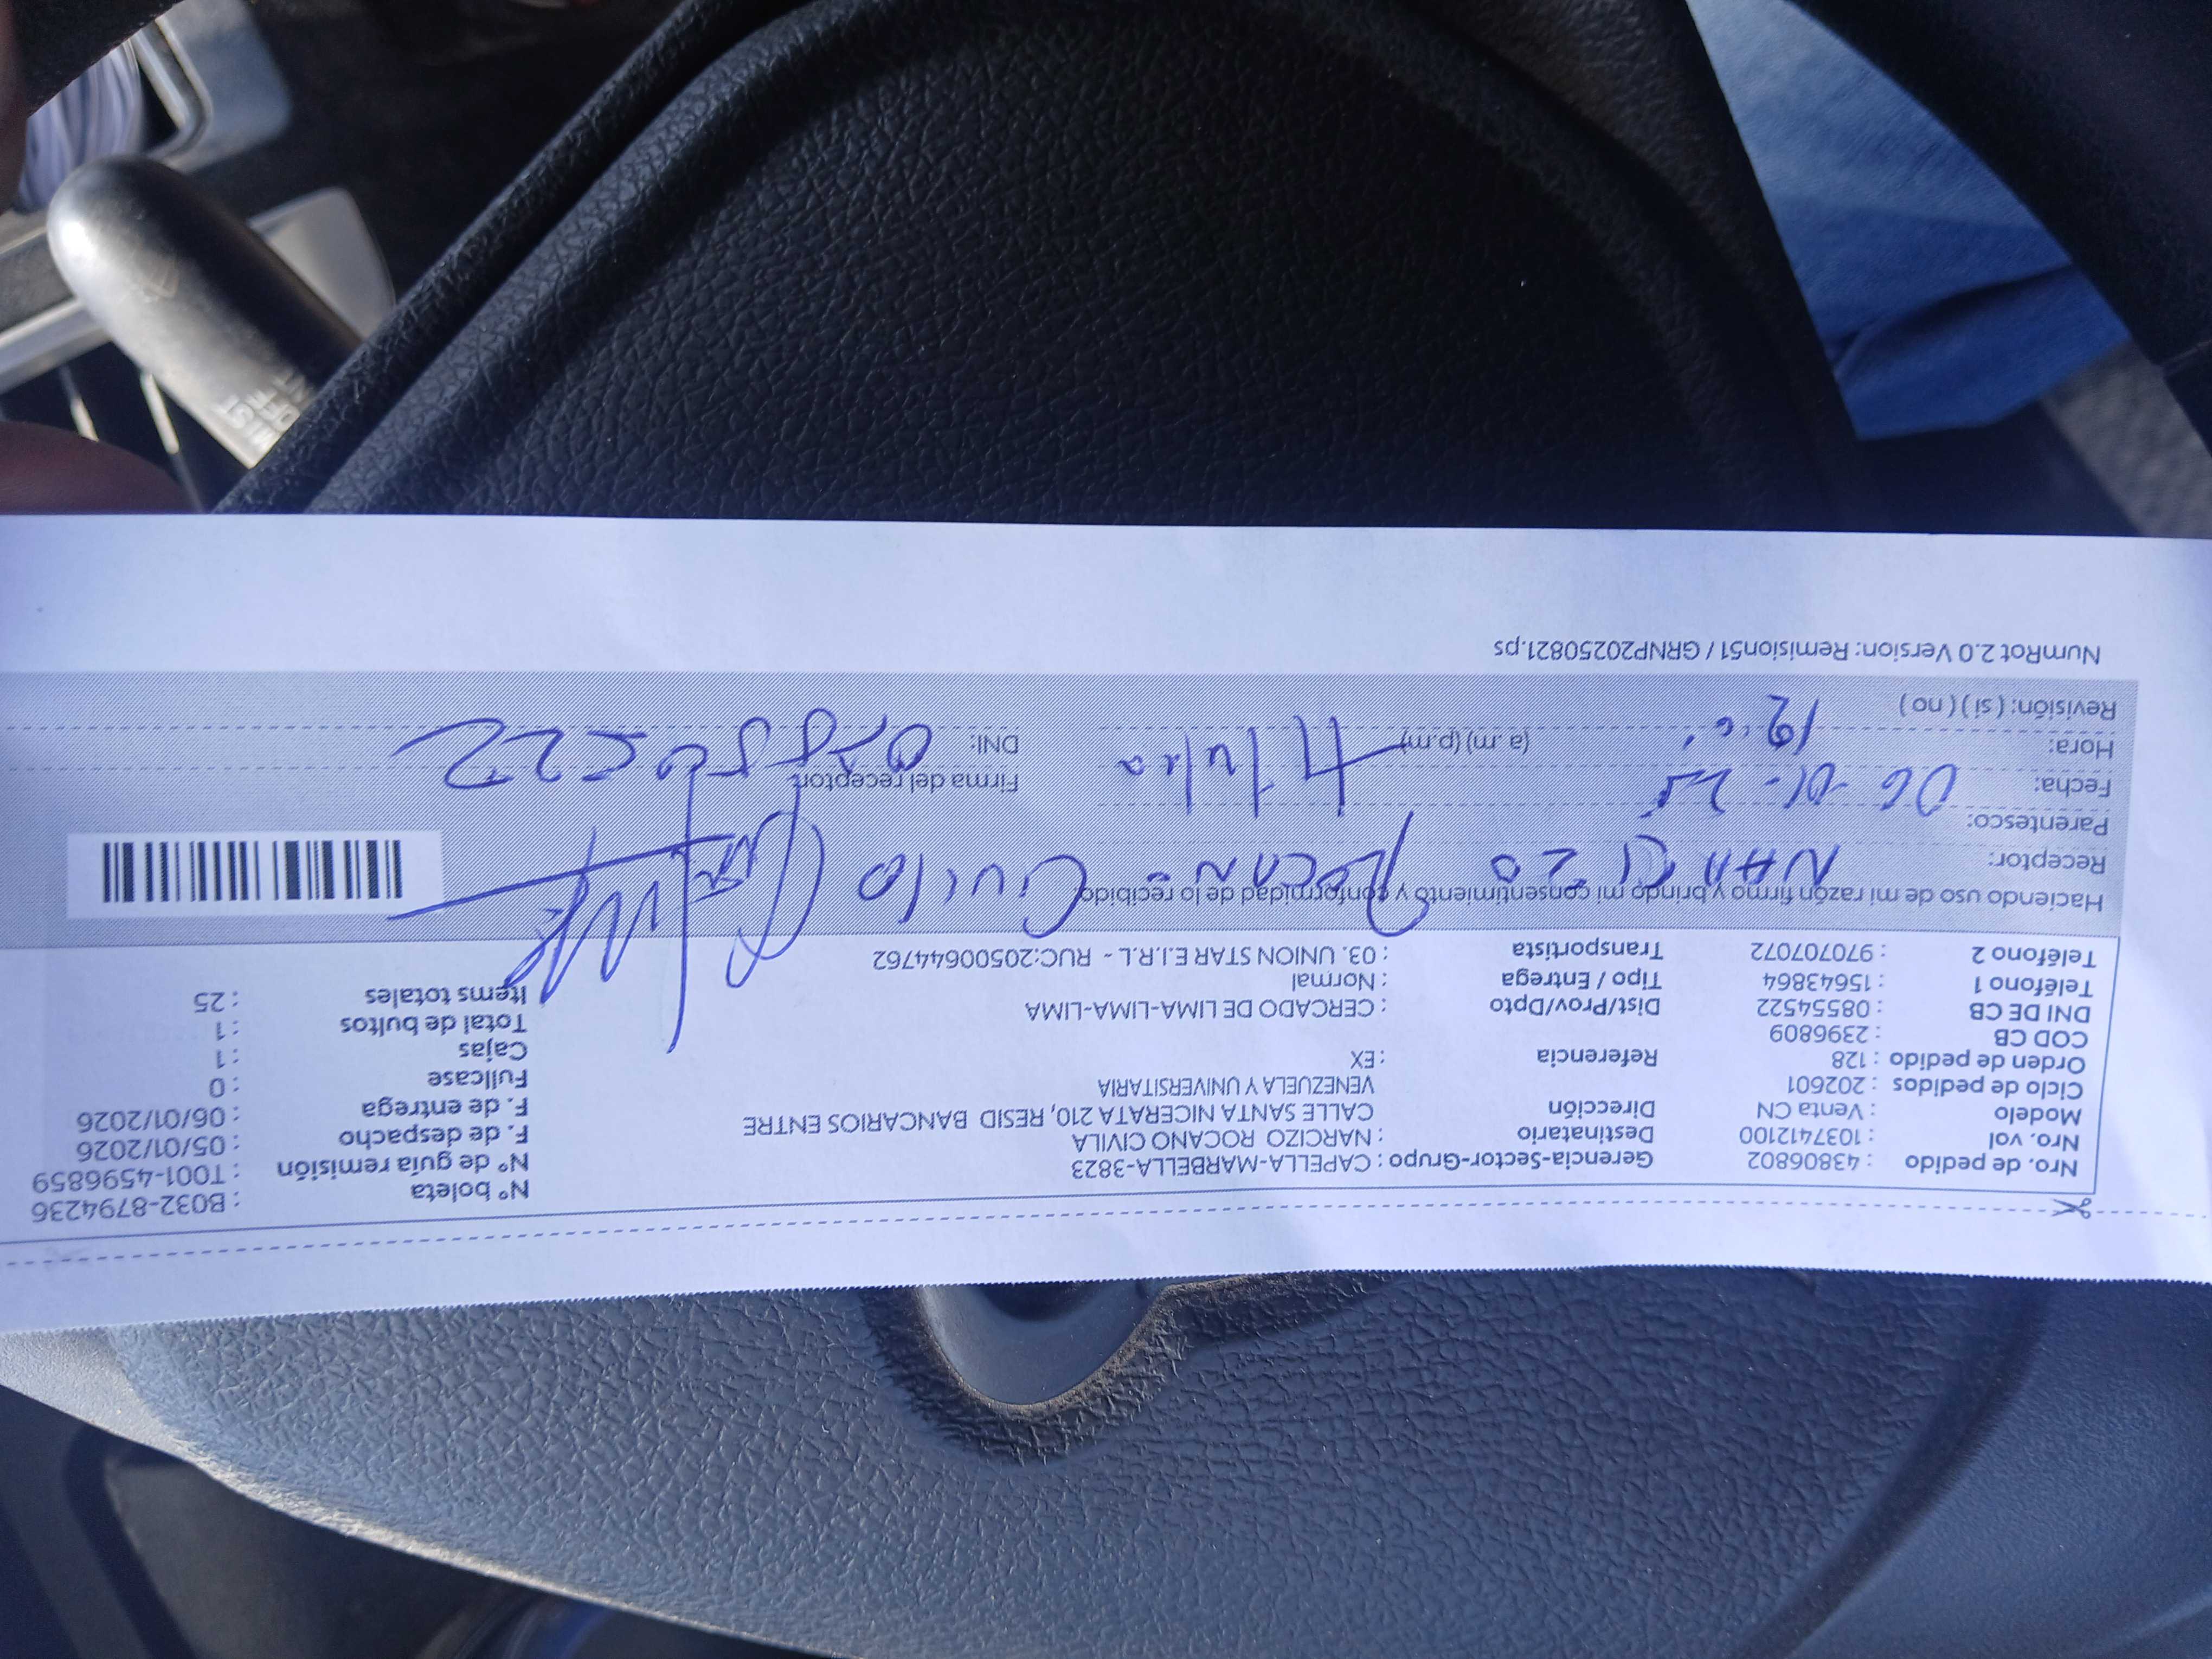 Nro. de pedido : 43806802 Gerencia-Sector-Grupo : CAPELLA-MARBELLA-3823 N° boleta : B032-8794236
Nro. vol : 1037412100 Destinatario : NARCIZO ROCANO CIVILA N° de guía remisión : T001-4596859
Modelo : Venta CN Dirección CALLE SANTA NICERATA 210, RESID BANCARIOS ENTRE F. de despacho : 05/01/2026
Ciclo de pedidos : 202601 VENEZUELA Y UNIVERSITARIA F. de entrega : 06/01/2026
Orden de pedido : 128 Referencia : EX Fullcase : 0
COD CB : 2396809 Cajas : 1
DNI DE CB : 08554522 Dist/Prov/Dpto : CERCADO DE LIMA-LIMA-LIMA Total de bultos : 1
Teléfono 1 : 15643864 Tipo / Entrega : Normal Items totales : 25
Teléfono 2 : 97070707072 Transportista : 03. UNION STAR E.I.R.L - RUC:20500644762
Haciendo uso de mi razón firmo y brindo mi consentimiento y conformidad de lo recibido.
Receptor:
Parentesco:
Fecha: Firma del receptor:
Hora: (a.m) (p.m) DNI:
Revisión: ( si ) ( no )
NumRot 2.0 Version: Remision51 / GRNP20250821.ps